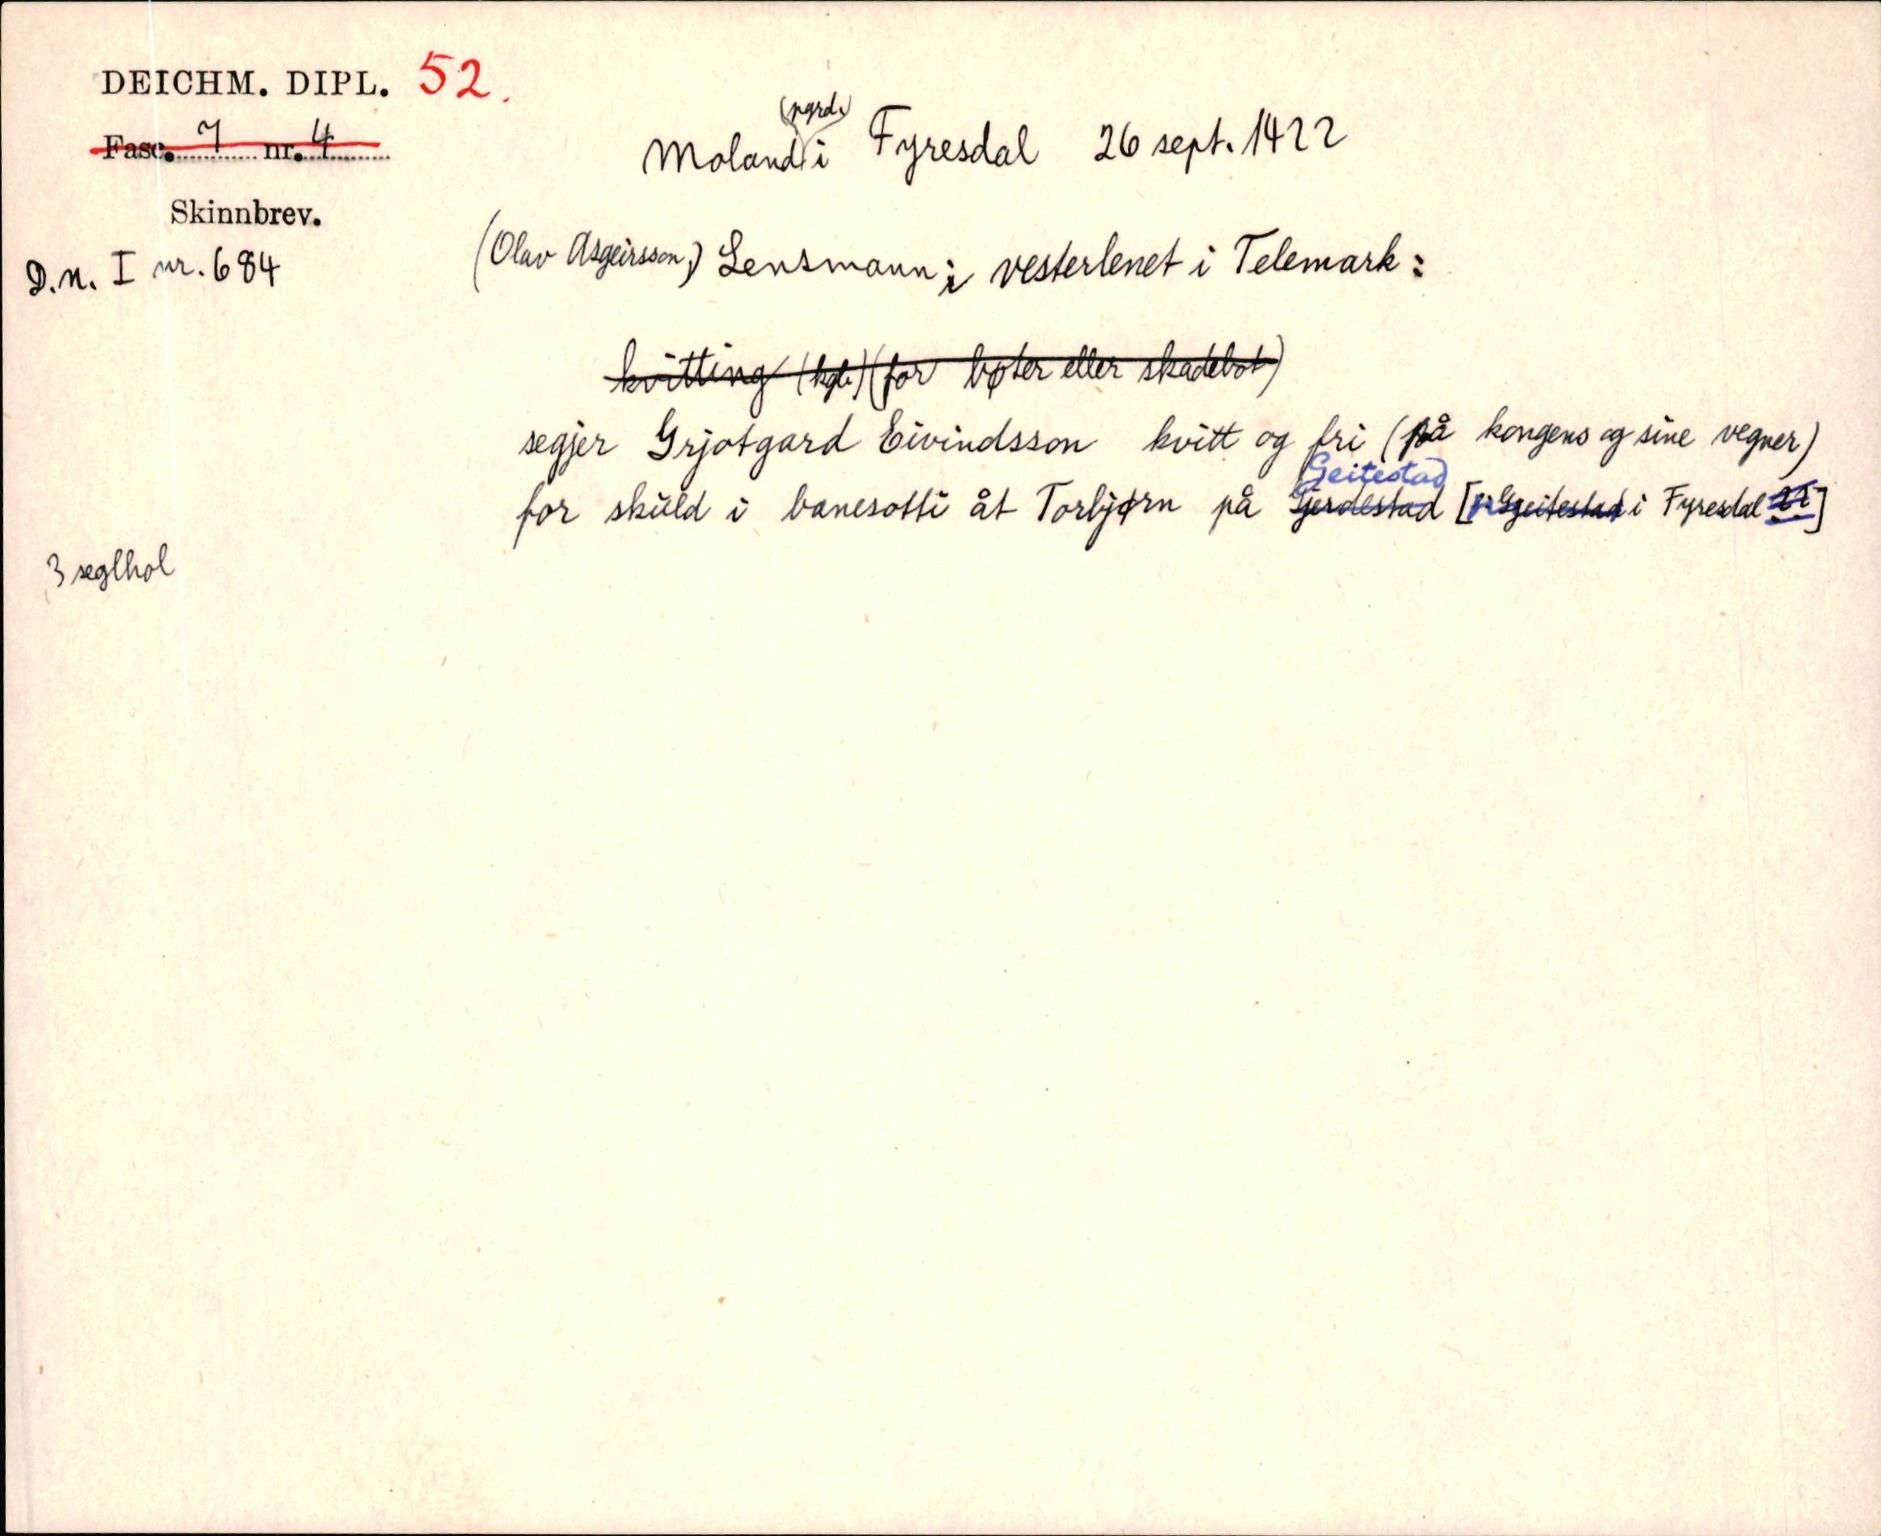 DEICHM. DIPL. 52.
Fasc. 7 nr. 4
Skinnbrev.
D.n. I nr. 684
(pgrd.)
Moland i Fyresdal 26 sept. 1422
(Olav Asgeirsson,) Lensmann i vesterlenet i Telemark:
kvitting (kgl.) (for bøter eller skadebot)
segjer Grjotgard Eivindsson kvitt og fri (på kongens og sine vegner)
Geitestad
for skuld i banesotti åt Torbjørn på Gjerdestad [Geitestad i Fyresdal]
3 seglhol